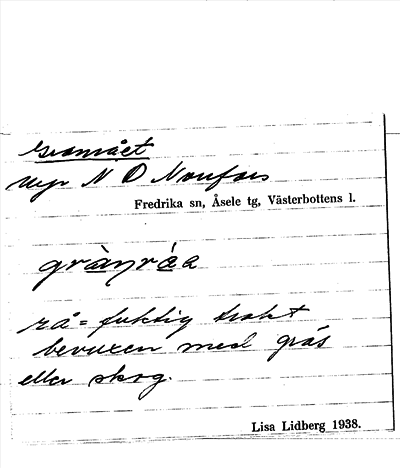 Granrået
myr N O Norrfors
Fredrika sn, Åsele tg, Västerbottens l.
gràŋráa
rå = fuktig trakt
bevuxen med gräs
eller skog.
Lisa Lidberg 1938.